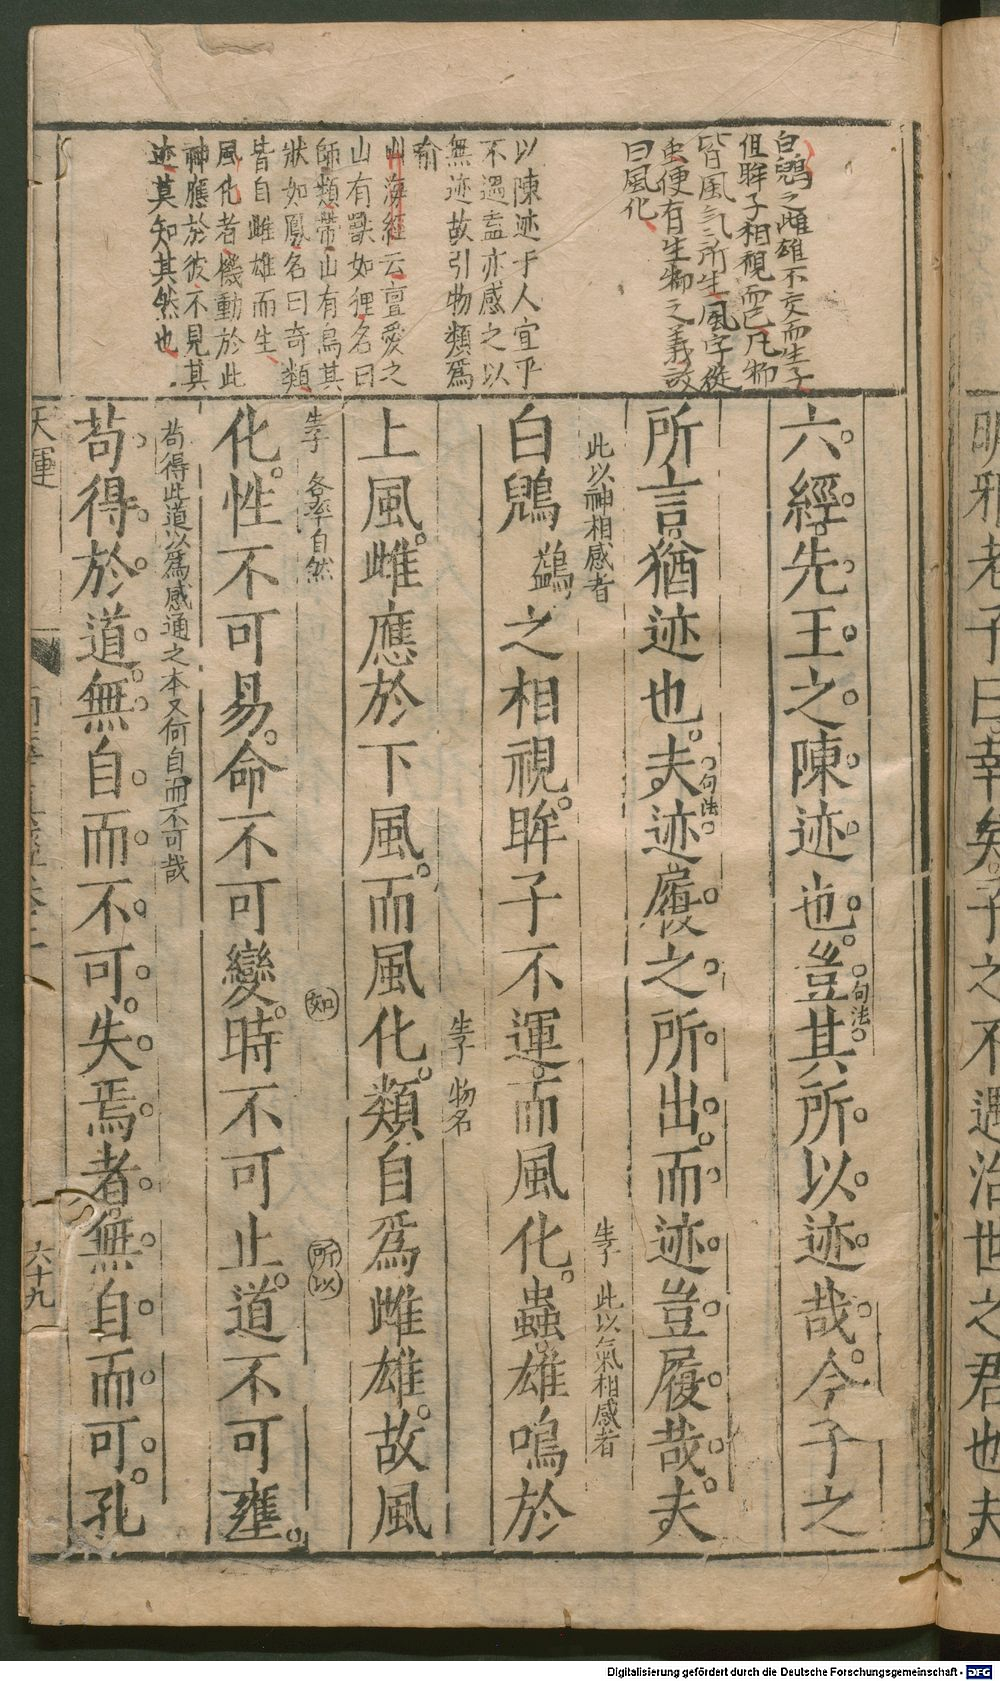 白鶂之雌雄不交而生子
但眸子相視而已凡物
皆風氣所生風字從
虫便有生物之義故
曰風化
以陳迹于人宜乎
不遇盖亦感之以
無迹故引物類爲
喻
山海經云亶爰之
山有獸如狸名曰
師類帶山有鳥其
狀如鳳名曰奇類
皆自雌雄而生
風化者機動於此
神應於彼不見其
迹莫知其然也
六經先王之陳迹也豈其所以迹哉今子之
句法
所言猶迹也夫迹履之所出而迹豈履哉夫
句法
此以神相感者
生子 此以氣相感者
白鶂鶂之相視眸子不運而風化蟲雄鳴於
生子 物名
上風雌應於下風而風化類自爲雌雄故風
生子 各率自然
如
所以
化性不可易命不可變時不可止道不可壅
苟得此道以爲感通之本又何自而不可哉
苟得於道無自而不可失焉者無自而可孔
天運
六十九
明邪老子曰幸矣子之不遇治世之君也夫
Digitalisierung gefördert durch die Deutsche Forschungsgemeinschaft - DFG